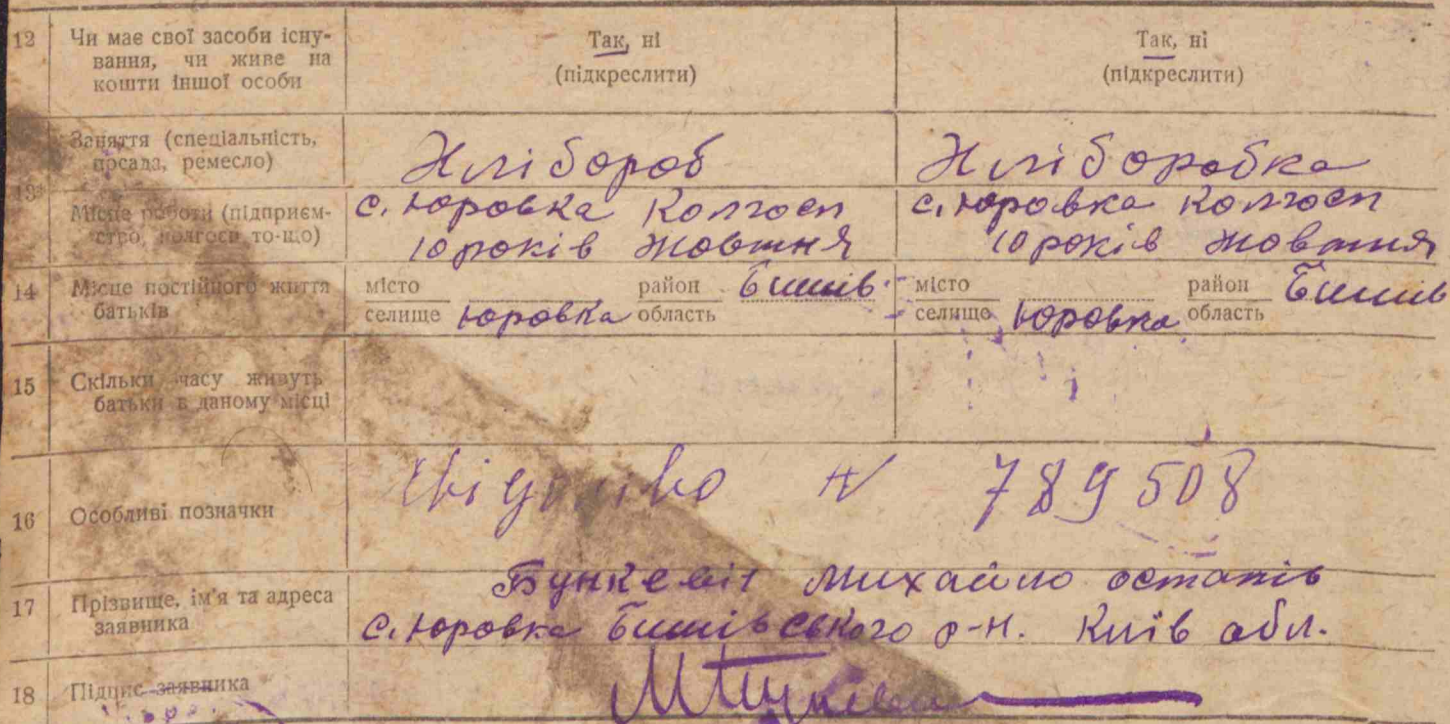 12 Чи має свої засоби існу-
вання, чи живе на
кошти іншої особи
Так, ні
(підкреслити)
Так, ні
(підкреслити)
13 Заняття (спеціальність,
посада, ремесло)
Хлібороб
Хліборобка
Місце роботи (підприєм-
ство, колгосп то-що)
с. Юровка Колгосп
10 років Жовтня
с. Юровка Колгосп
10 років Жовтня
14 Місце постійного життя
батьків
місто район Бишів
селище Юровка область
місто район Бишів
селище Юровка область
15 Скільки часу живуть
батьки в даному місці
16 Особливі позначки
N 789508
17 Прізвище, ім'я та адреса
заявника
Михайло Остапів
с. Юровка Бишівського р-н. Київ обл.
18 Підпис заявника